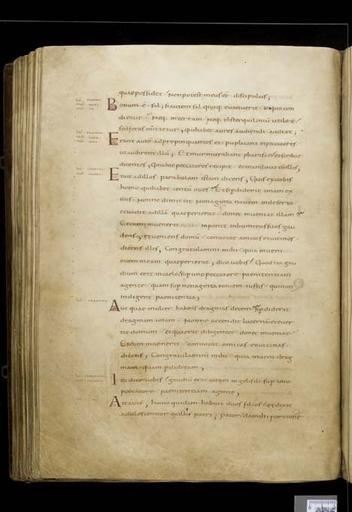 quae possidet non potest meus esse discipulus;
Bonum est sal; si autem sal quoque evanuerit in quo con
dietur neque in terram neque in sterquilinium utile est
sed foras mittetur; qui habet aures audiendi audiat;
Erant autem adpropinquantes ei publicani et peccatores
ut audirent illum; Et murmurabant pharisaei et scribae
dicentes, quia hic peccatores recipit et manducat cum illis;
Et ait ad illos parabolam istam dicens, Quis ex vobis
homo qui habet centum oves et si perdiderit unam ex
illis nonne dimittit nonaginta novem in deserto
et vadit ad illam quae perierat donec inveniat illam
Et cum invenerit inponit in humeros suos gau
dens, et veniens domum convocat amicos et vicinos
dicens illis, Congratulamini mihi quia inveni
ovem meam quae perierat; dico vobis quod ita gau
dium erit in caelo super uno peccatore paenitentiam
agente quam super nonaginta novem iustis qui non
indigent paenitentia;
Aut quae mulier habens dragmas decem si perdiderit
dragmam unam nonne accendit lucernam et ever
rit domum et quaerit diligenter donec inveniat
Et cum invenerit convocat amicas et vicinas
dicens, Congratulamini mihi quia inveni drag
mam quam perdideram;
Ita dico vobis gaudium erit coram angelis dei super uno
peccatore paenitentiam agente;
Ait autem, homo quidam habuit duos filios et dixit
adulescentior ex illis patri, Pater da mihi portionem